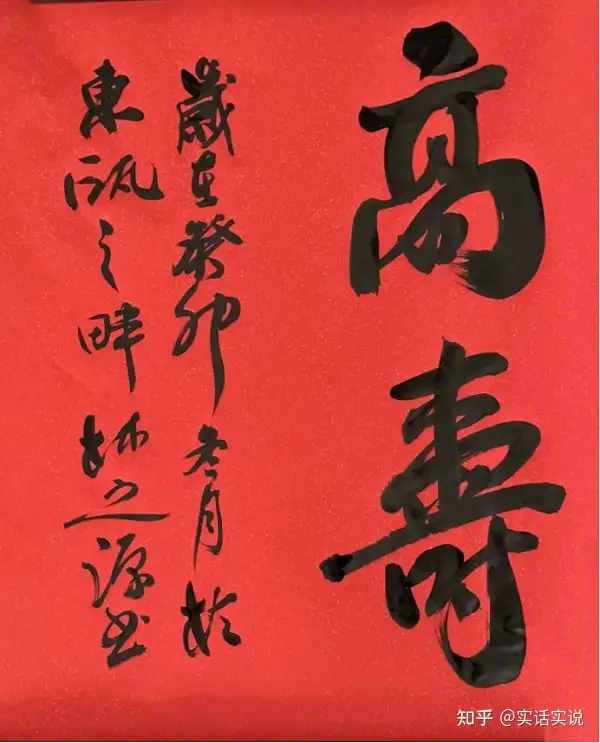 高壽
歲在癸卯冬月於
東甌之畔林之源书
知乎 @实话实说